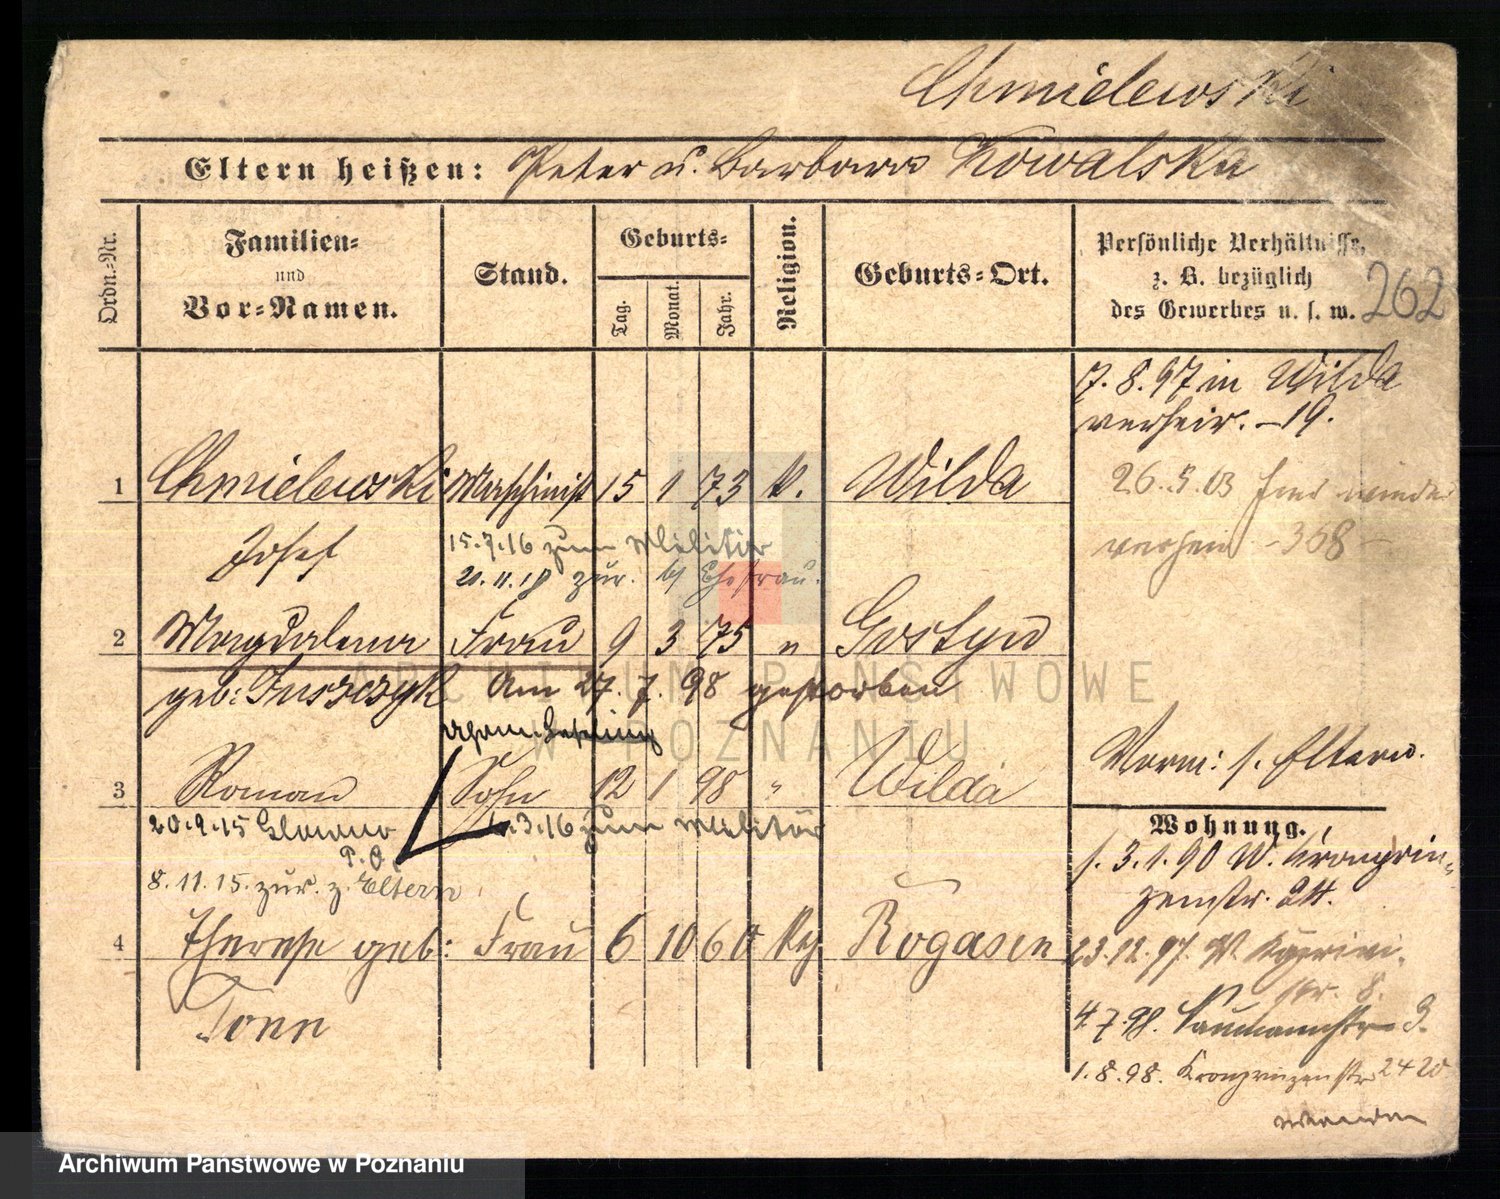 Chmielewski
Eltern heißen: Peter u. Barbara Kowalska
Ordn.-Nr.
Familien- und Vor-Namen.
Stand.
Geburts-
Tag.
Monat.
Jahr.
Religion.
Geburts-Ort.
Persönliche Verhältnisse, z. B. bezüglich des Gewerbes u. s. w.
262
7. 8. 97 in Wilda
verheir. – 19.
1 Chmielewski Maschinist 15 1 73 k. Wilda
26. 5. 03 hier wieder
Josef
15.7.16 zum Militär
verheir – 368 –
21.11.18 zur. b/ Ehefrau.
2 Magdalena Frau 9 3 75 " Gostyn
geb: Juszczyk Am 27. 7. 98 gestorben
3 Roman Sohn 12 1 98 " Wilda
Vorm: s. Eltern.
20.9.15 Glowno
3.16 zum Militär
P. O.
8.11.15. zur. z. Eltern
Wohnung.
s. 3. 1. 90 W. Kronprin-
zenstr. 24.
4 Therese geb: Frau 6 10 60 Rogasen
23.12.97. W.
str. 8.
Tonn
4.7.98. Naumannstr 3.
1.8.98. Kronprinzenstr 24
ARCHIWUM PAŃSTWOWE
W POZNANIU
Archiwum Państwowe w Poznaniu